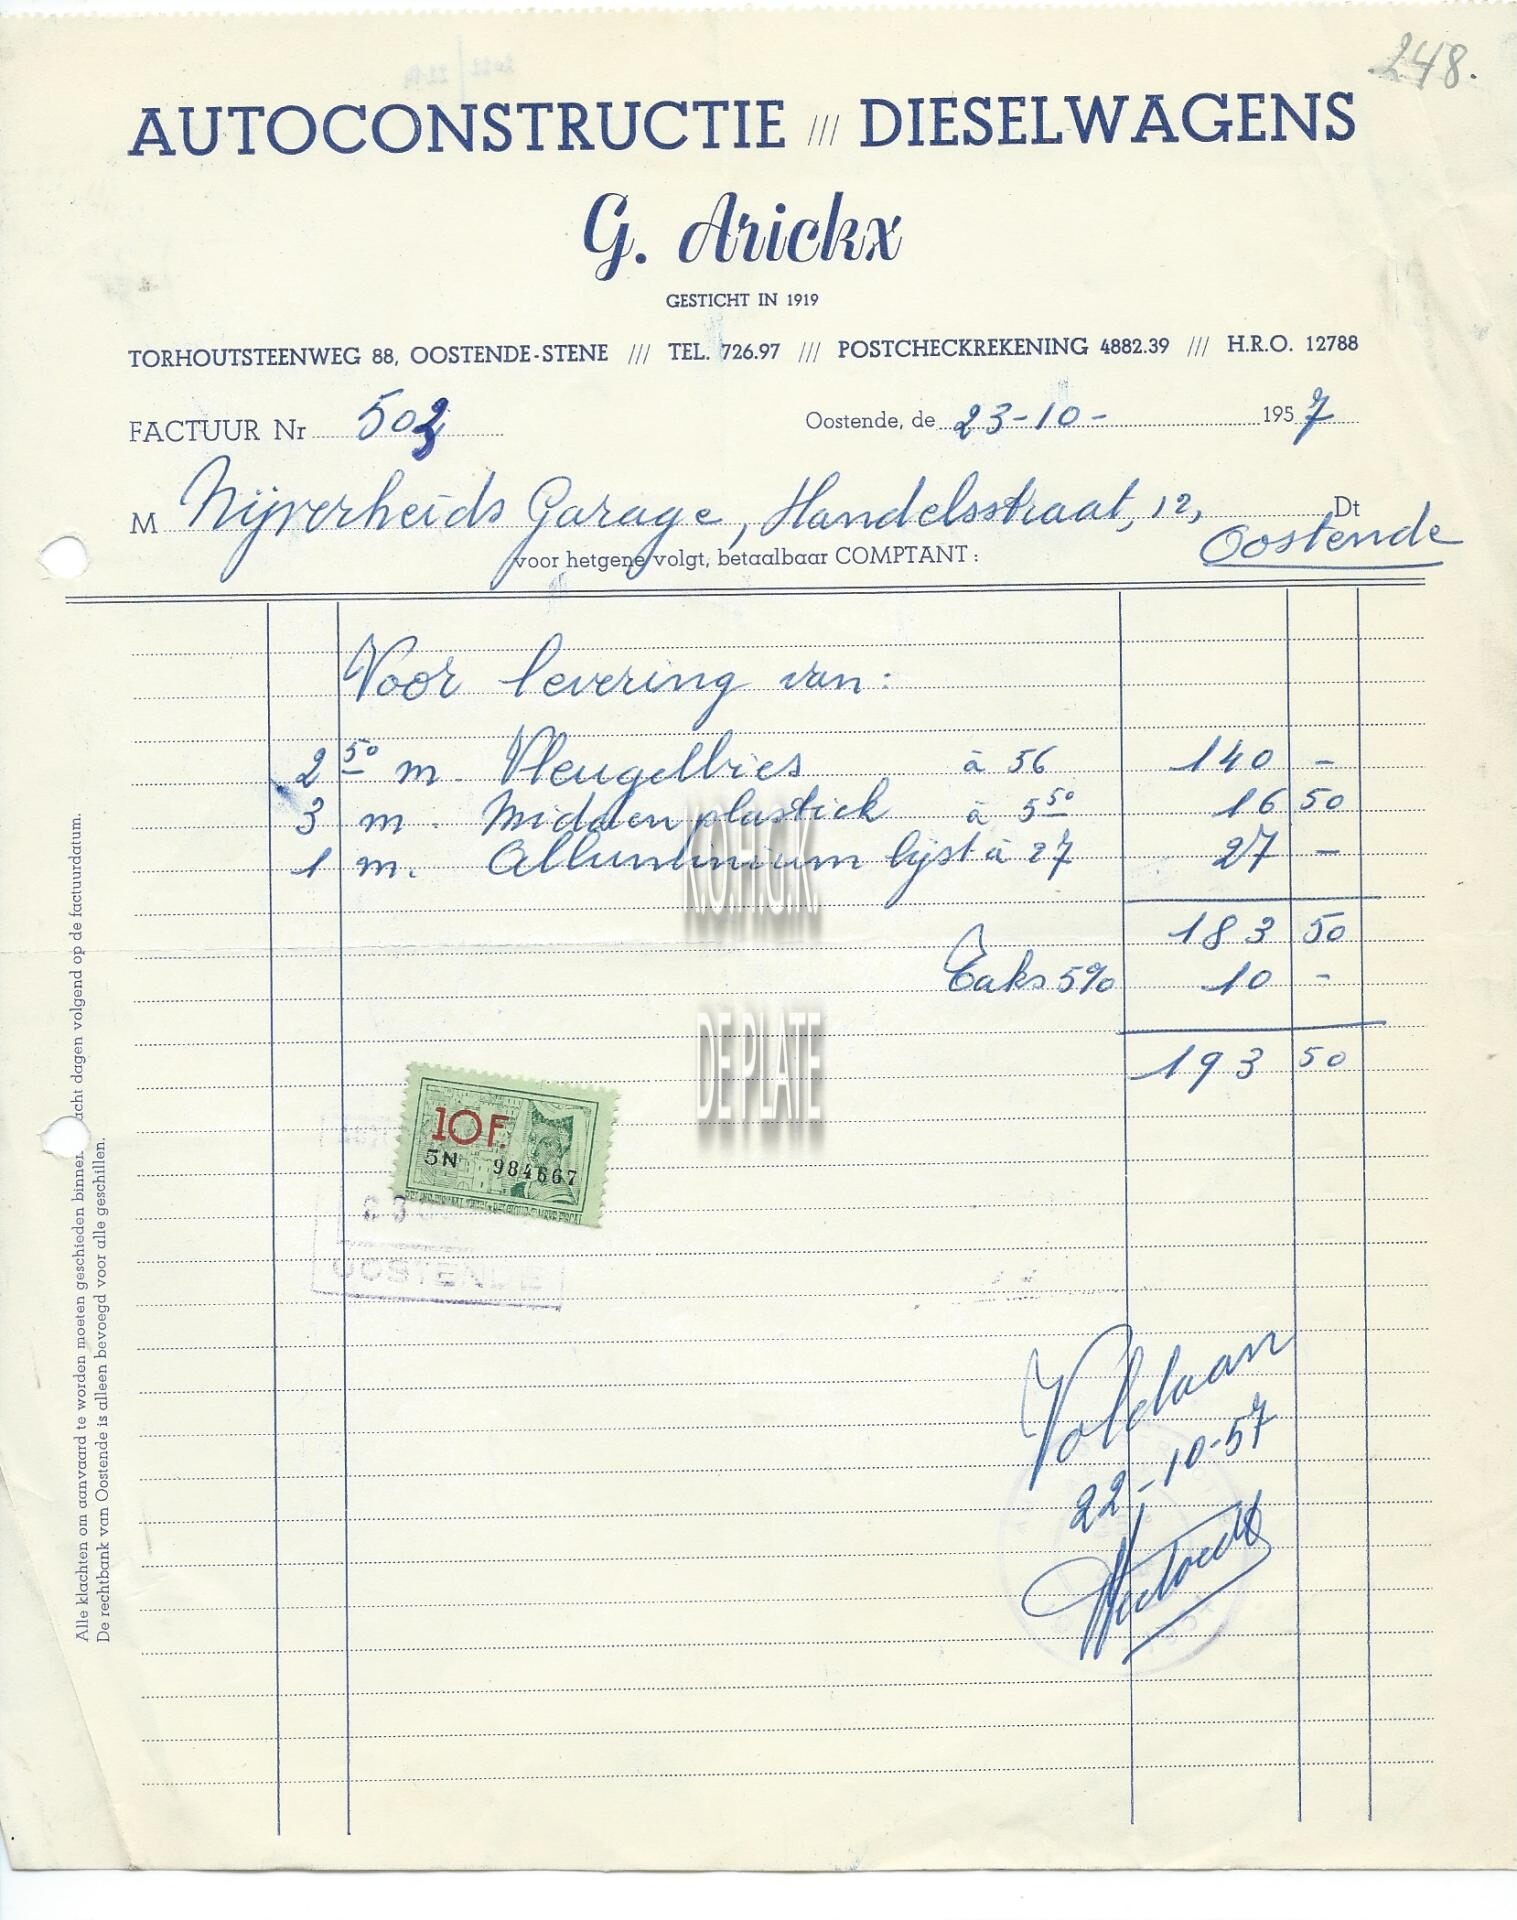 248.
AUTOCONSTRUCTIE /// DIESELWAGENS
G. Arickx
GESTICHT IN 1919
TORHOUTSTEENWEG 88, OOSTENDE-STENE /// TEL. 726.97 /// POSTCHECKREKENING 4882.39 /// H.R.O. 12788
FACTUUR Nr 503 Oostende, de 23-10- 1957
M Nijverheids Garage, Handelsstraat, 12, Dt
Oostende
voor hetgene volgt, betaalbaar COMPTANT :
Voor levering van:
2 50 m. Vleugelbies à 56 140 -
3 m. Midden plastick à 5 50 16 50
1 m. Alluminium lijst à 27 27 -
183 50
Taks 5% 10 -
193 50
K.O.H.G.K.
DE PLATE
10 F.
5N 984667
23
OOSTENDE
Voldaan
22-10-57
Alle klachten om aanvaard te worden moeten geschieden binnen acht dagen volgend op de factuurdatum.
De rechtbank van Oostende is alleen bevoegd voor alle geschillen.